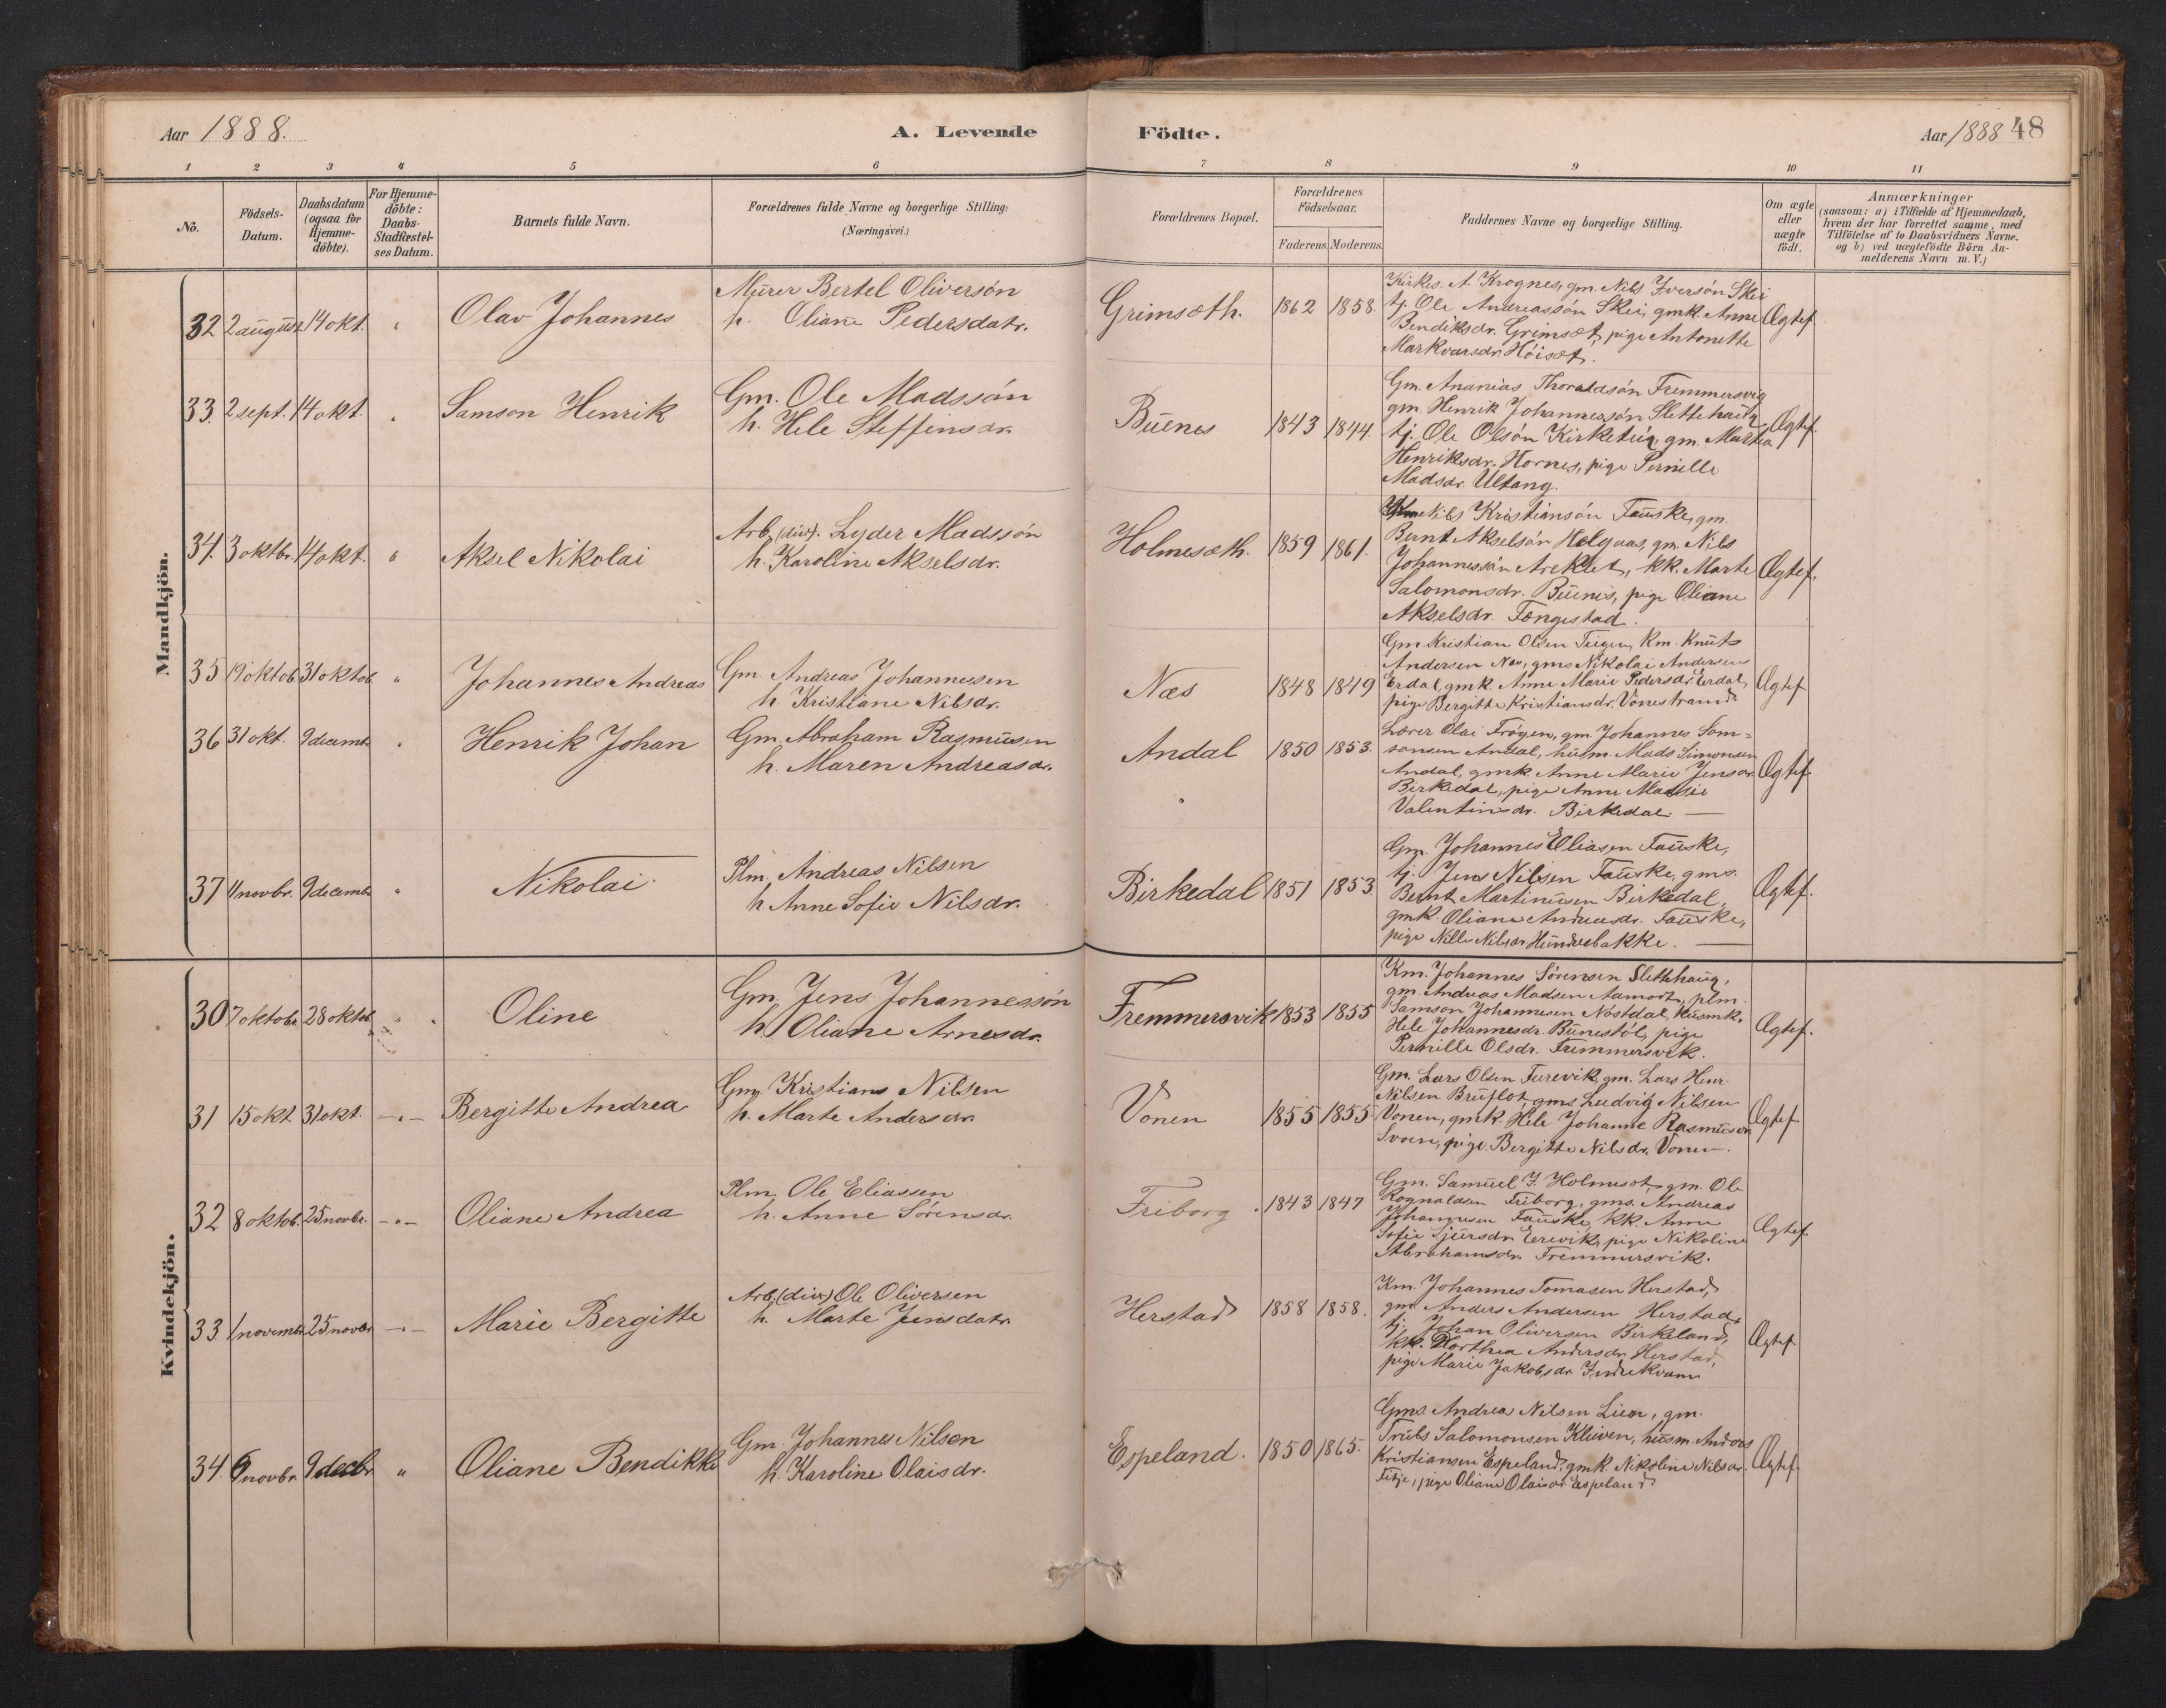 Aar 1888.
A. Levende
Födte.
Aar 1888 48
1 2 3 4 5 6 7 8 9 10 11
No.
Födsels-
Datum.
Daabsdatum
(ogsaa for
Hjemme-
döbte).
For Hjemme-
döbte:
Daabs-
Stadfæstel-
ses Datum.
Barnets fulde Navn.
Forældrenes fulde Navne og borgerlige Stilling:
(Næringsvei.)
Forældrenes Bopæl.
Forældrenes
Födselsaar.
Faderens. Moderens.
Faddernes Navne og borgerlige Stilling.
Om ægte
eller
uægte
födt.
Anmærkninger
(saasom: a) i Tilfælde af Hjemmedaab,
hvem der har forrettet samme, med
Tilföielse af to Daabsvidners Navne.
og b) ved uægtefödte Börn An-
melderens Navn m. V.)
Mandkjön.
32 2 august 14 okt. " Olav Johannes
Murer Bertel Oliversön
h. Oliane Pedersdatr.
Grimsæth. 1862 1858.
Kirkes. A. Krognes, gm. Nils Iversön Skei
tj. Ole Andreassön Skei, gmk. Anne
Bendiksdr. Grimsæt, pige Antonette
Markvarsdr. Höisæt.
Ægtef.
33. 2 sept. 14 okt. " Samson Henrik
Gm. Ole Madssön
h. Hele Steffensdr.
Buenes 1843 1844.
Gm. Ananias Thoraldsön Fremmersvig
gm. Henrik Johannessön Slettehaug
tj. Ole Olsön Kirketeig, gm. Martha
Henriksdr. Hornes, pige Pernille
Madsdr. Ultang.
Ægtef.
34. 3 oktbr. 14 okt. " Aksel Nikolai
Arb. (div). Lyder Madssön
h. Karoline Akselsdr.
Holmesæth. 1859 1861.
Nils Kristiansön Fauske, gm.
Bernt Akselsön Helgaas, gm. Nils
Johannessön Areklet, kk. Marte
Salomonsdr. Buenes, pige Oliane
Akselsdr. Fængestad.
Ægtef.
35 19 oktob 31 oktob " Johannes Andreas
Gm Andreas Johannessen
h. Kristiane Nilsdr.
Næs 1848 1849
Gm Kristian Olsen Teigen, Km. Knut
Andersen Næs, gms Nikolai Andersen
Erdal, gmk. Anne Marie Pedersdr. Erdal,
pige Bergitte Kristiansdr. Vonestrand.
Ægtef
36 31 okt. 9 decembr " Henrik Johan
Gm. Abraham Rasmusen
h. Maren Andreasdr.
Andal 1850 1853.
Lærer Olai Frögen, gm. Johannes Sam=
sonsen Andal, husm. Mads Simonsen
Andal, gmk. Anne Marie Jensdr
Birkedal, pige Anne Madsie
Valentinsdr. Birkedal. —
Ægtef
37 11 novbr. 9 decembr " Nikolai
Plm. Andreas Nilsen
h Anne Sofie Nilsdr.
Birkedal 1851 1853
Gm. Johannes Eliasen Fauske,
tj. Jens Nilsen Fauske, gms.
Bernt Martinusen Birkedal,
gmk. Oliane Andreasdr. Fauske,
pige Nille Nilsdr Hundvebakke. —
Ægtef.
Kvindekjön.
30 7 oktobr 28 oktob. " Oline
Gm. Jens Johannessön
h. Oliane Arnesdr.
Fremmersvik 1853 1855
Km. Johannes Sörensen Slettehaug,
gm. Andreas Madsen Aamodt, plm.
Samson Johannesen Nöstdal, husmk.
Hele Johannesdr. Bunestöl, pige
Pernille Olsdr. Fremmersvik.
Ægtef.
31 15 okt. 31 okt. —"— Bergitte Andrea
Gm Kristians Nilsen
h. Marte Andersdr.
Vonen 1855 1855
Gm. Lars Olsen Furevik, gm. Lars Henr.
Nilsen Bruflot, gms Ludvig Nilsen
Vonen, gmk. Hele Johanne Rasmusdr.
Svoen, pige Bergitte Nilsdr. Vonen.
Ægtef
32 8 oktob. 25 novbr. —"— Oliane Andrea
Plm. Ole Eliassen
h. Anne Sörensdr.
Friborg 1843 1847
Gm. Samuel J. Holmesæt, gm. Ole
Rognaldsen Friborg, gms. Andreas
Johannesen Fauske, kk. Anne
Sofie Sjursdr. Eerevik, pige Nikoline
Abrahamsdr. Fremmersvik.
Ægtef.
33 1 novembr 25 novbr —"— Marie Bergitte
Arb. (div) Ole Oliversen
h. Marte Jensdatr.
Herstad 1858 1858.
Km. Johannes Tomasen Herstad,
gm Anders Andersen Herstad,
tj. Johan Oliversen Birkeland,
kk. Dorthea Andersdr. Herstad,
pige Marie Jakobsdr. Indrekvam
Ægtef.
34 6 novbr. 9 decbr " Oliane Bendikke
Gm. Johannes Nilsen
h. Karoline Olaisdr.
Espeland. 1850 1865.
Gms. Andrea Nilsen Lien, gm.
Truls Salomonsen Kleiven, husm. Anders
Kristiansen Espeland, gmk. Nikoline Nilsdr.
Fitje, pige Oliane Olaisdr Espeland.
Ægtef.